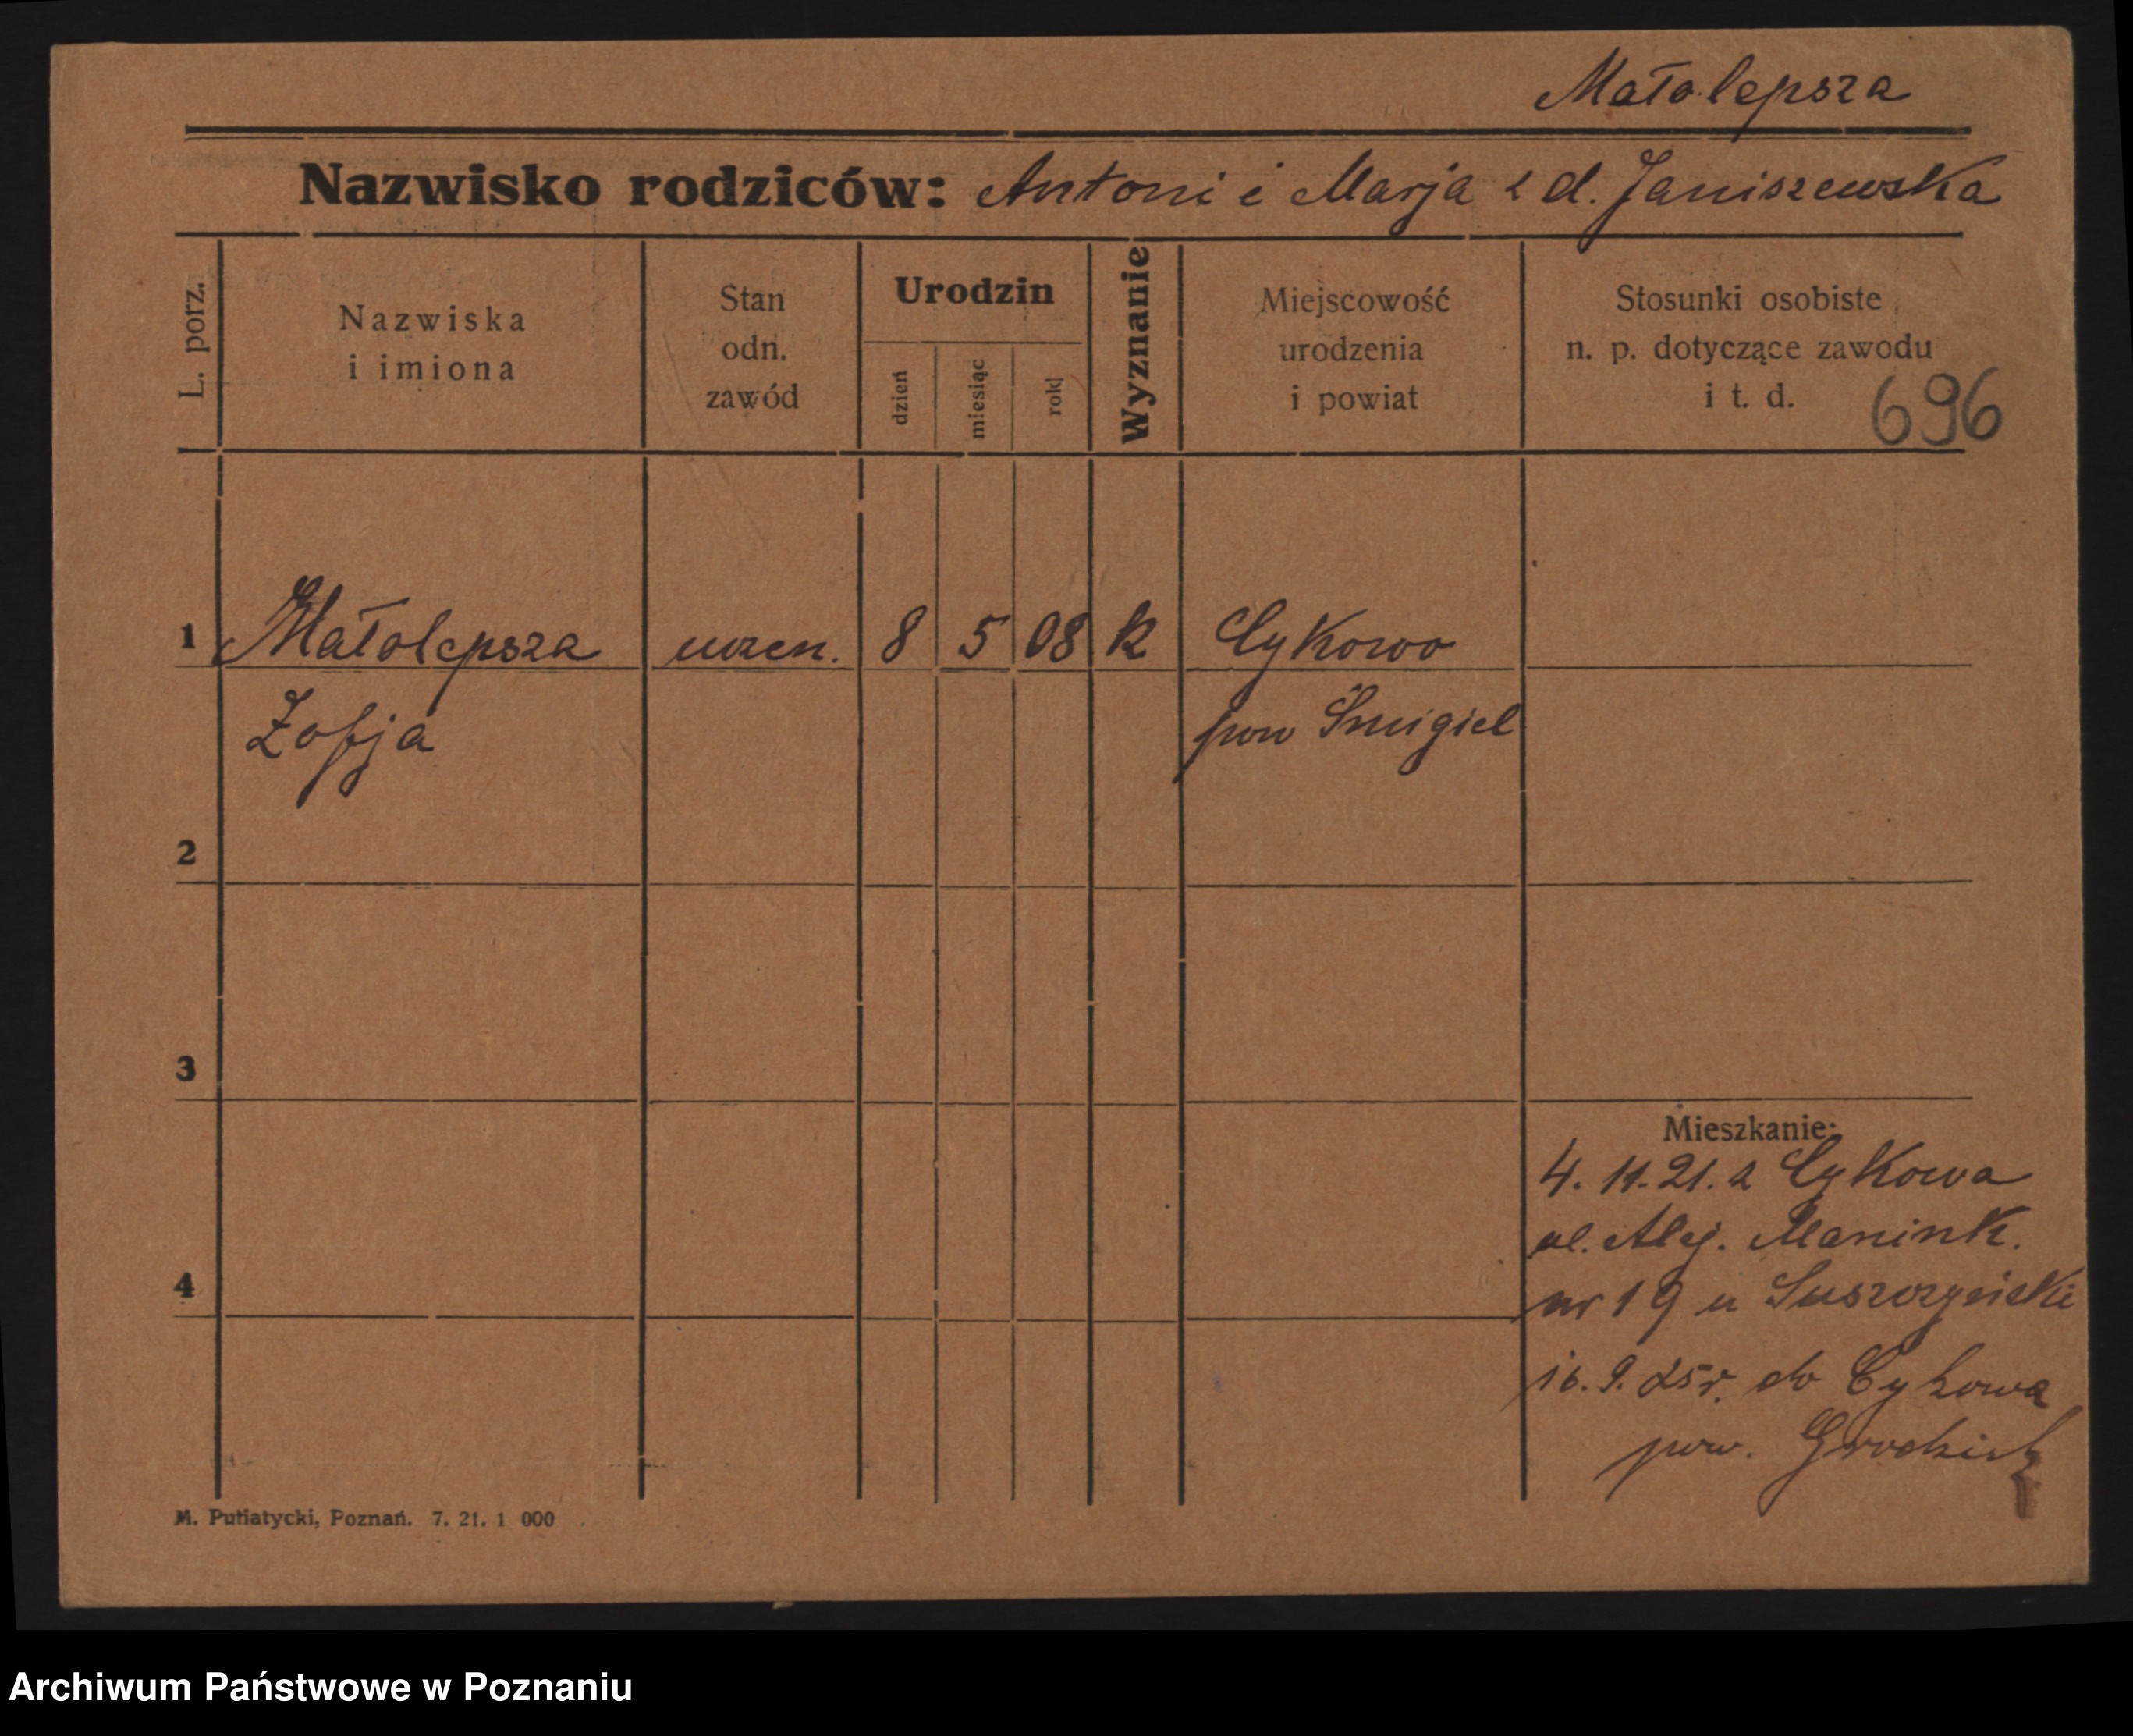 Małolepsza
Nazwisko rodziców: Antoni i Marja z d. Janiszewska
L. porz.
Nazwiska
i imiona
Stan
odn.
zawód
Urodzin
dzień
miesiąc
rok
Wyznanie
Miejscowość
urodzenia
i powiat
Stosunki osobiste
n. p. dotyczące zawodu
i t. d.
696
1 Małolepsza uczen. 8 5 08 k Cykowo
Zofja pow Śmigiel
2
3
Mieszkanie:
4. 11. 21. z Cykowa
ul. Alej. Marcink.
4
nr 19 u
16. 9. 25r. do Cykowa
pow. Grodzisk
M. Putiatycki, Poznań. 7. 21. 1 000
Archiwum Państwowe w Poznaniu